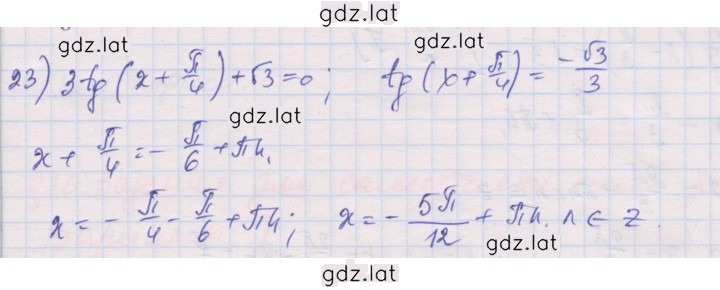 gdz.lat
gdz.lat
23) 3tg(x + π/4) + √3 = 0; tg(x + π/4) = -√3/3
gdz.lat
x + π/4 = - π/6 + πn,
x = - π/4 - π/6 + πn; x = - 5π/12 + πn, n ∈ Z.
gdz.lat
gdz.lat